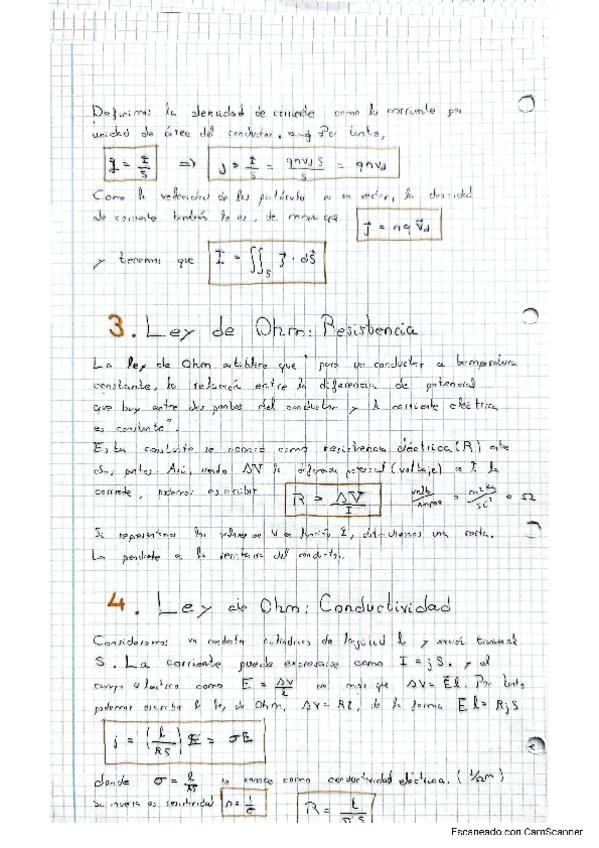 Definimos la densidad de corriente como la corriente por
unidad de área del conductor. Por tanto,
j = I/S ⇒ j = I/S = qnvdS/S = qnvd
Como la velocidad de las partículas es un vector, la densidad
de corriente también lo es, de manera que j = nq vd
y tenemos que I = ∬S j · dS
3. Ley de Ohm: Resistencia
La ley de Ohm establece que "para un conductor a temperatura
constante, la relación entre la diferencia de potencial
que hay entre dos puntos del conductor y la corriente eléctrica
es constante".
Esta constante se conoce como resistencia eléctrica (R) entre
puntos. Así, siendo ΔV la potencial (voltaje) e I la
corriente, podemos escribir R = ΔV/I = Ω
Si representamos los valores de V en función I, una recta.
La pendiente es la resistencia del conductor.
4. Ley de Ohm: Conductividad
Consideremos un conductor cilíndrico de longitud l y
S. La corriente puede expresarse como I = jS. y el
campo eléctrico como E = ΔV/l que ΔV = El. Por tanto
podemos escribir la ley de Ohm, ΔV = RI, de la forma El = RjS
j = (l/RS) E = σE
donde σ = l/RS se conoce como conductividad eléctrica. (1/Ωm)
Su inversa es resistividad
Escaneado con CamScanner